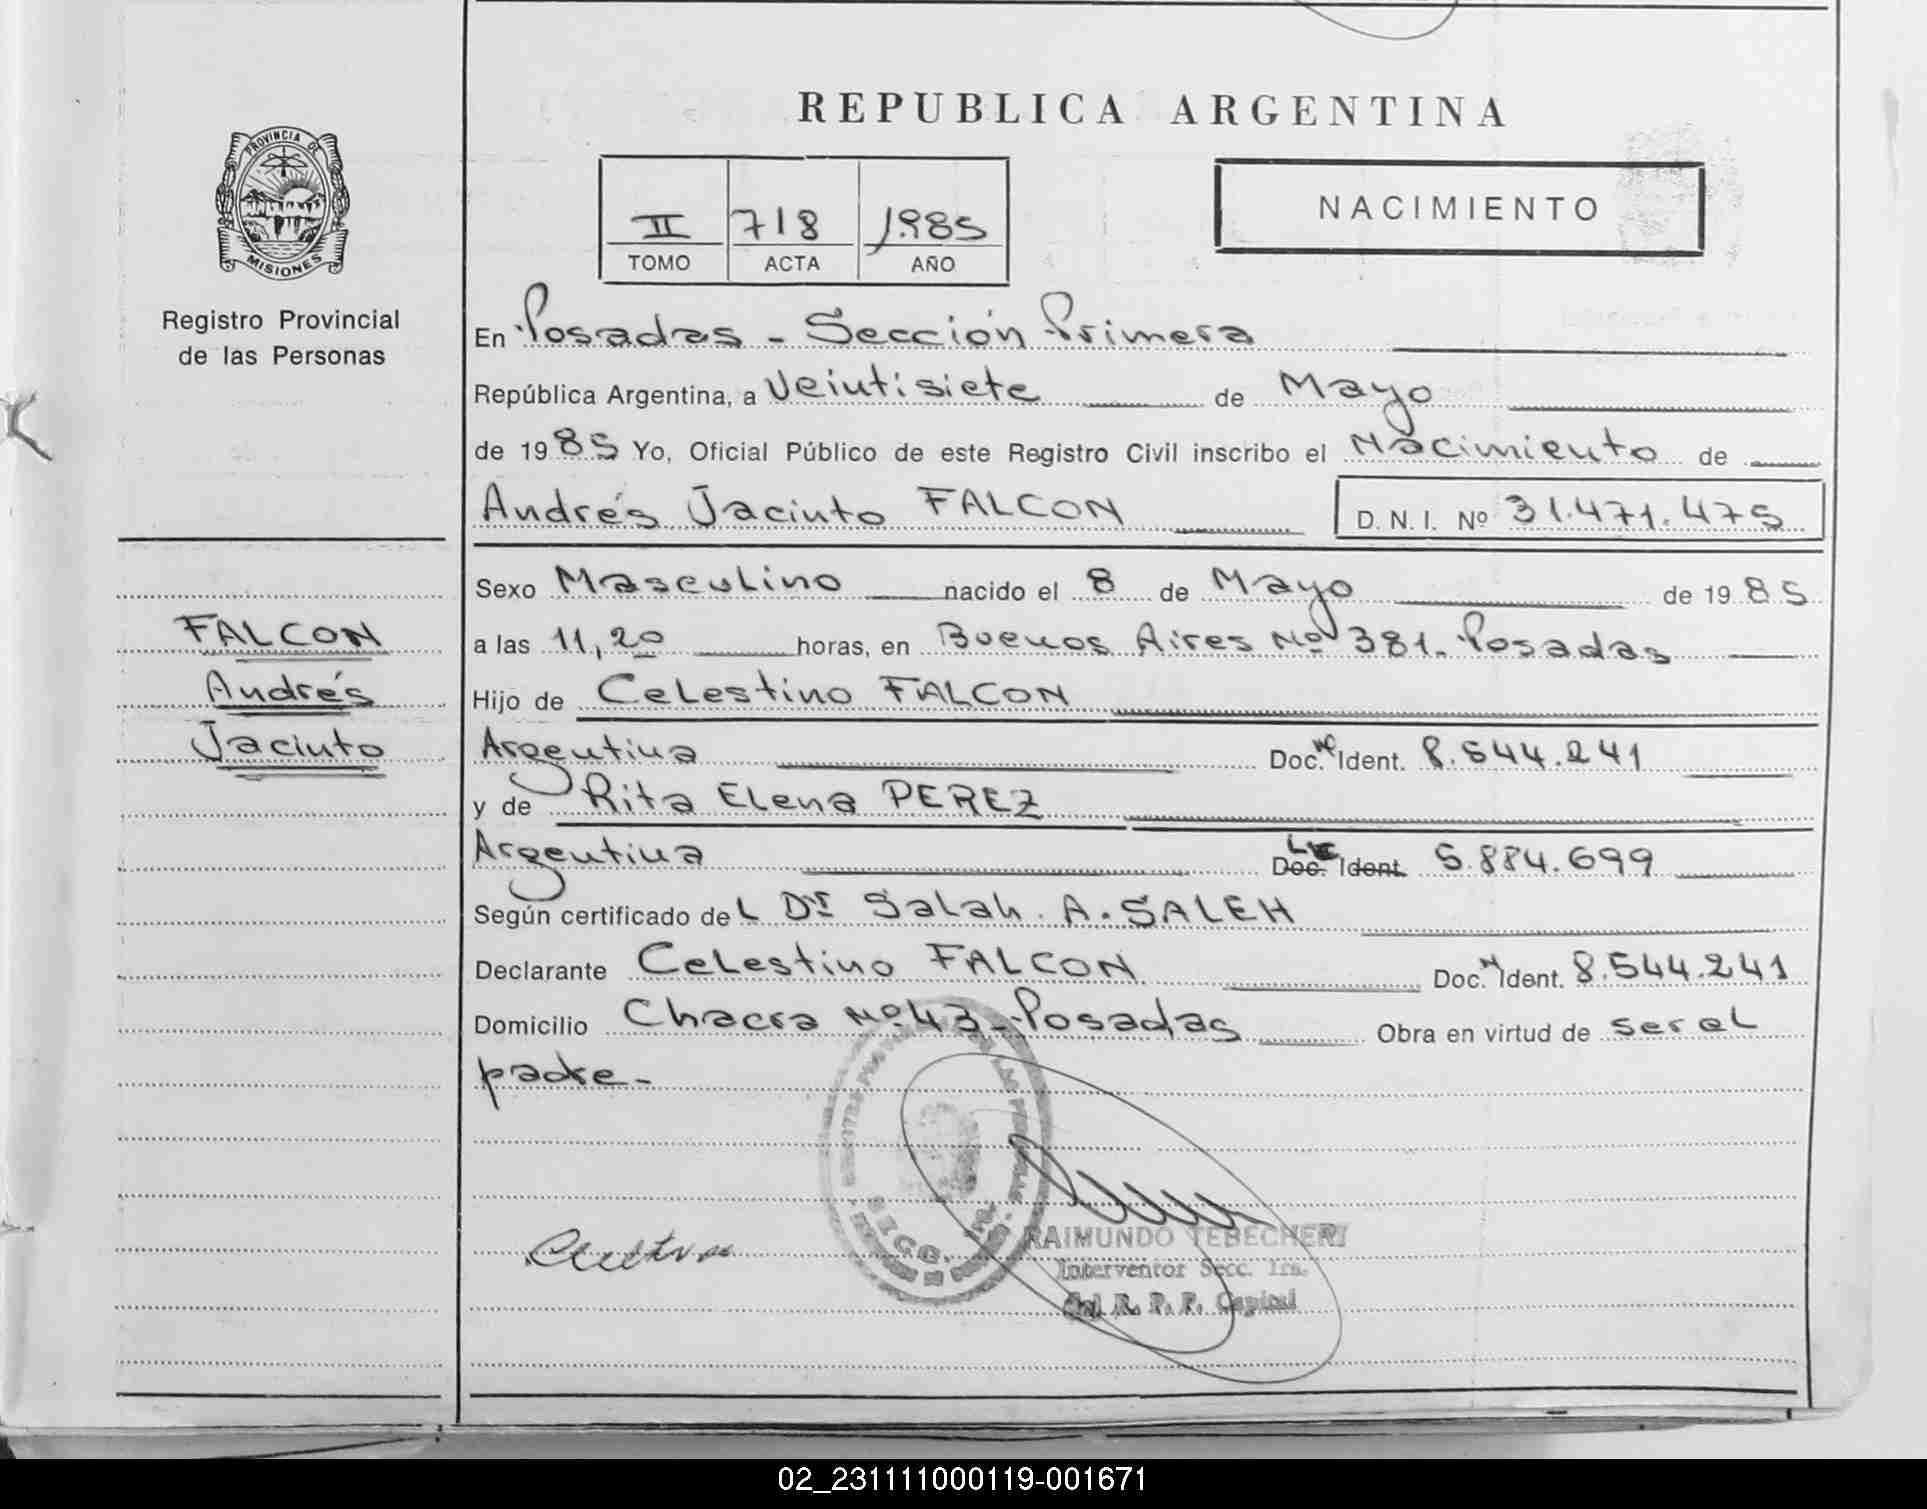 REPUBLICA ARGENTINA
PROVINCIA DE
MISIONES
Registro Provincial
de las Personas
II 718 1985
TOMO ACTA AÑO
NACIMIENTO
En Posadas - Sección Primera
República Argentina, a Veintisiete de Mayo
de 1985 Yo, Oficial Público de este Registro Civil inscribo el Nacimiento de
Andrés Jacinto FALCON D. N. I. Nº 31.471.475
FALCON
Andrés
Jacinto
Sexo Masculino nacido el 8 de Mayo de 1985
a las 11,20 horas, en Buenos Aires Nº 381. Posadas
Hijo de Celestino FALCON
Argentina Doc. Nº Ident. 8.544.241
y de Rita Elena PEREZ
Argentina Doc. Ident. 5.884.699
Según certificado del Dr. Salah. A. SALEH
Declarante Celestino FALCON Doc. N Ident. 8.544.241
Domicilio Chacra Nº 43 - Posadas Obra en virtud de ser el
padre -
SECC.
RAIMUNDO TEBECHERI
Interventor Secc. 1ra.
del R. P. P. Capital
02_231111000119-001671